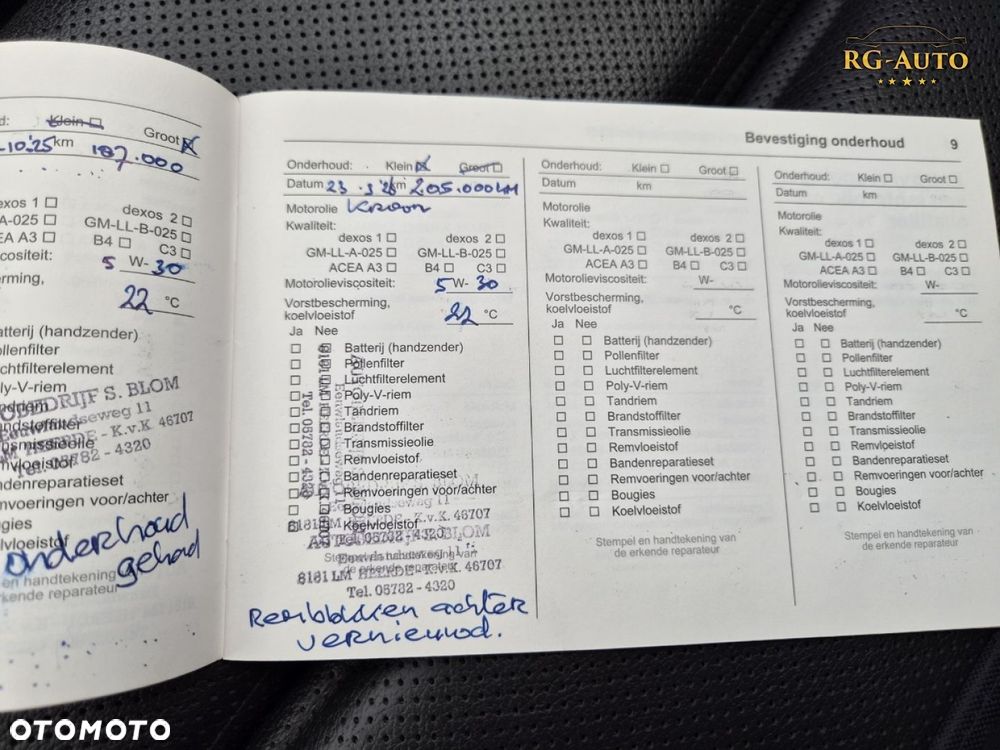 RG-AUTO
d: Klein Groot
-10.'25 km 187.000
exos 1 dexos 2
A-025 GM-LL-B-025
CEA A3 B4 C3
ositeit: 5 W- 30
erming,
22 °C
atterij (handzender)
ollenfilter
uchtfilterelement
oly-V-riem
andriem
andstoffilter
ansmissieolie
mvloeistof
ndenreparatieset
mvoeringen voor/achter
ugies
elvloeistof
S. BLOM
seweg 11
HEERDE - K.v.K. 46707
Tel. 05782 - 4320
onderhoud
gehad
el en handtekening
erkende reparateur
Bevestiging onderhoud 9
Onderhoud: Klein Groot
Datum 23 km 205.000 KM
Motorolie Kroon
Kwaliteit:
dexos 1 dexos 2
GM-LL-A-025 GM-LL-B-025
ACEA A3 B4 C3
Motorolieviscositeit: 5 W- 30
Vorstbescherming,
koelvloeistof 22 °C
Ja Nee
Batterij (handzender)
Pollenfilter
Luchtfilterelement
Poly-V-riem
Tandriem
Brandstoffilter
Transmissieolie
Remvloeistof
Bandenreparatieset
Remvoeringen voor/achter
Bougies
Koelvloeistof
Tel. 05782 - 4320
BLOM
8181 LM K.v.K. 46707
Tel. 05782 - 4320
BLOM
8181 LM HEERDE - K.v.K. 46707
Tel. 05782 - 4320
Remblokken achter
vernieuwd.
Onderhoud: Klein Groot
Datum km
Motorolie
Kwaliteit:
dexos 1 dexos 2
GM-LL-A-025 GM-LL-B-025
ACEA A3 B4 C3
Motorolieviscositeit: W-
Vorstbescherming,
koelvloeistof °C
Ja Nee
Batterij (handzender)
Pollenfilter
Luchtfilterelement
Poly-V-riem
Tandriem
Brandstoffilter
Transmissieolie
Remvloeistof
Bandenreparatieset
Remvoeringen voor/achter
Bougies
Koelvloeistof
Stempel en handtekening van
de erkende reparateur
Onderhoud: Klein Groot
Datum km
Motorolie
Kwaliteit:
dexos 1 dexos 2
GM-LL-A-025 GM-LL-B-025
ACEA A3 B4 C3
Motorolieviscositeit: W-
Vorstbescherming,
koelvloeistof °C
Ja Nee
Batterij (handzender)
Pollenfilter
Luchtfilterelement
Poly-V-riem
Tandriem
Brandstoffilter
Transmissieolie
Remvloeistof
Bandenreparatieset
Remvoeringen voor/achter
Bougies
Koelvloeistof
Stempel en handtekening van
de erkende reparateur
OTOMOTO